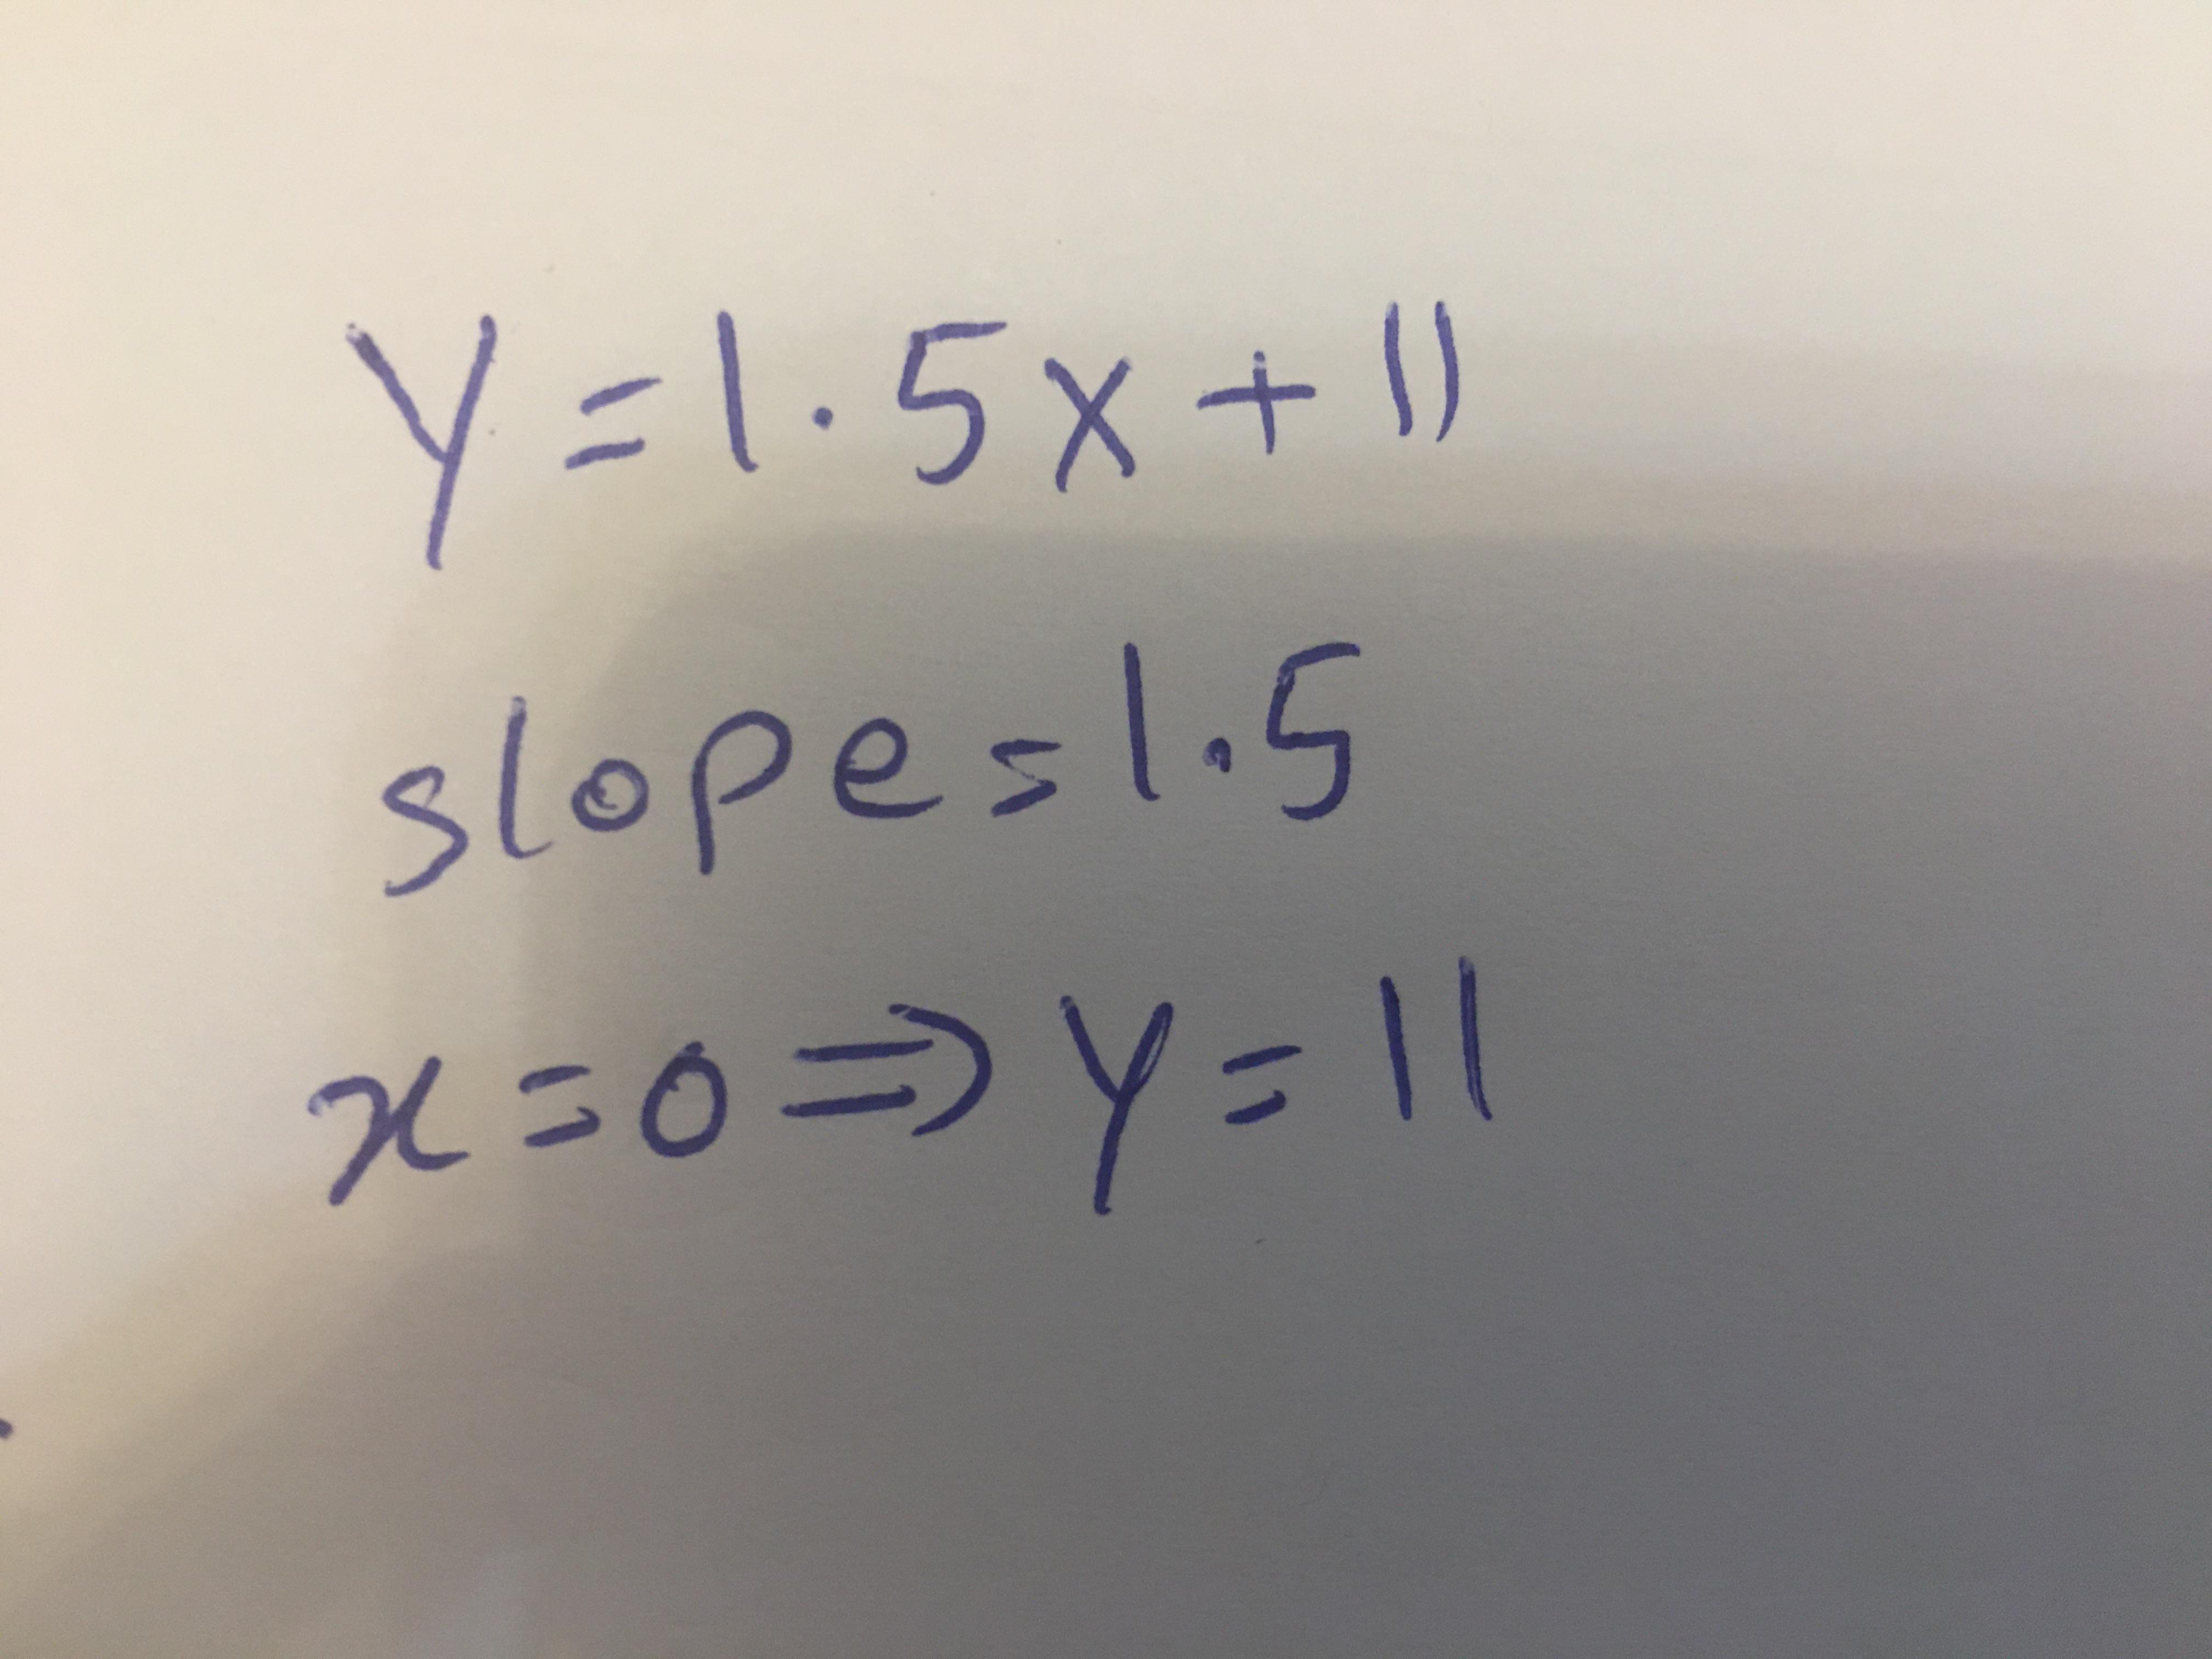 y=1.5x+11
slope=1.5
x=0⇒y=11